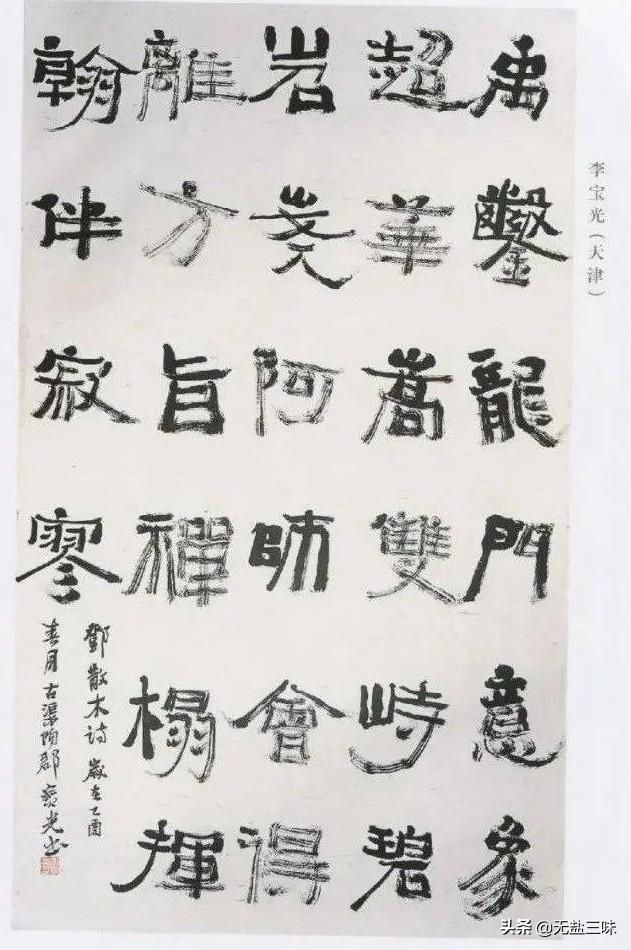 禹鑿龍門意象
超華嵩雙峙碧
岩阿師會得
離方旨禪榻揮
翰伴寂寥
鄧散木诗歲在乙酉
春月古渠陽郡寶光书
李宝光（天津）
头条 @无盐三味